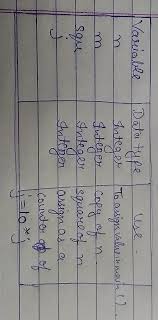 Variable Data type Use
n Integer To assign value in main ( ) .
m Integer copy of n.
squ Integer square of n
j Integer assign as a
counter of
j = 10 * j